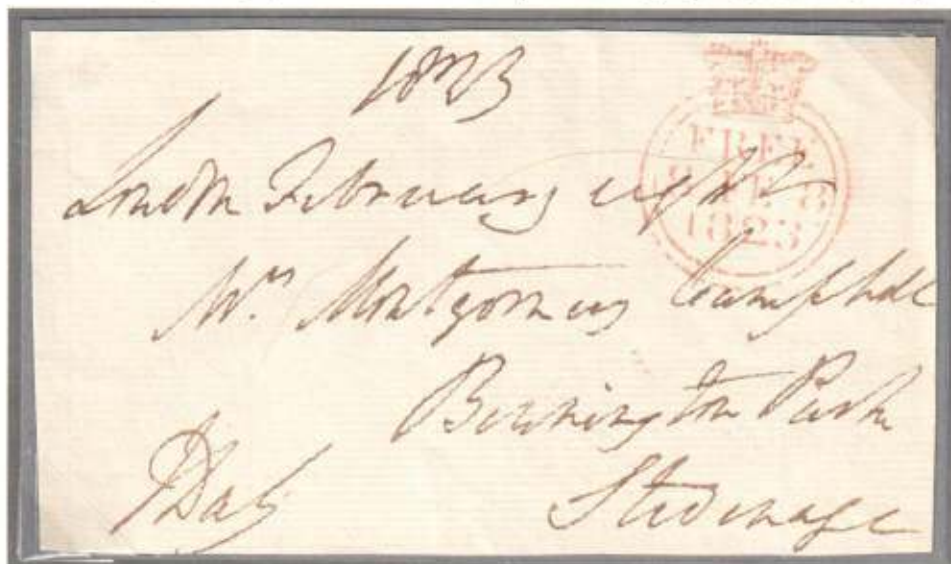 1823
FREE
8 FE 8
1823
London February eight
Mrs. Montgomery Campbell
Bennington Park
Stevenage